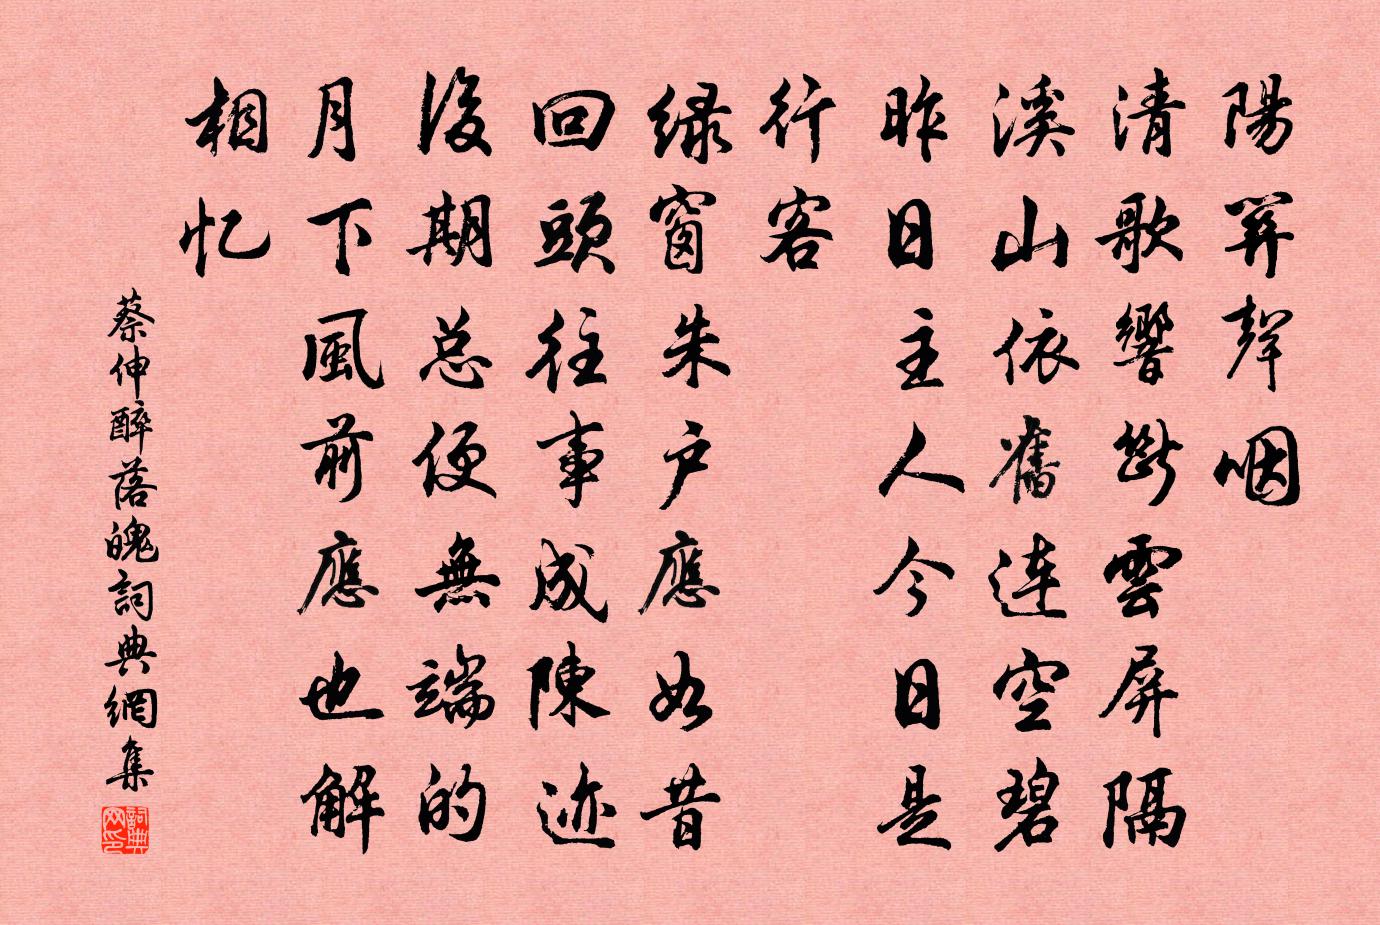 陽關聲咽
清歌響斷雲屏隔
溪山依舊連空碧
昨日主人今日是
行客
緑窗朱户應如昔
回頭往事成陳迹
後期总便無端的
月下風前應也解
相忆
蔡伸醉落魄詞典網集
詞典网印